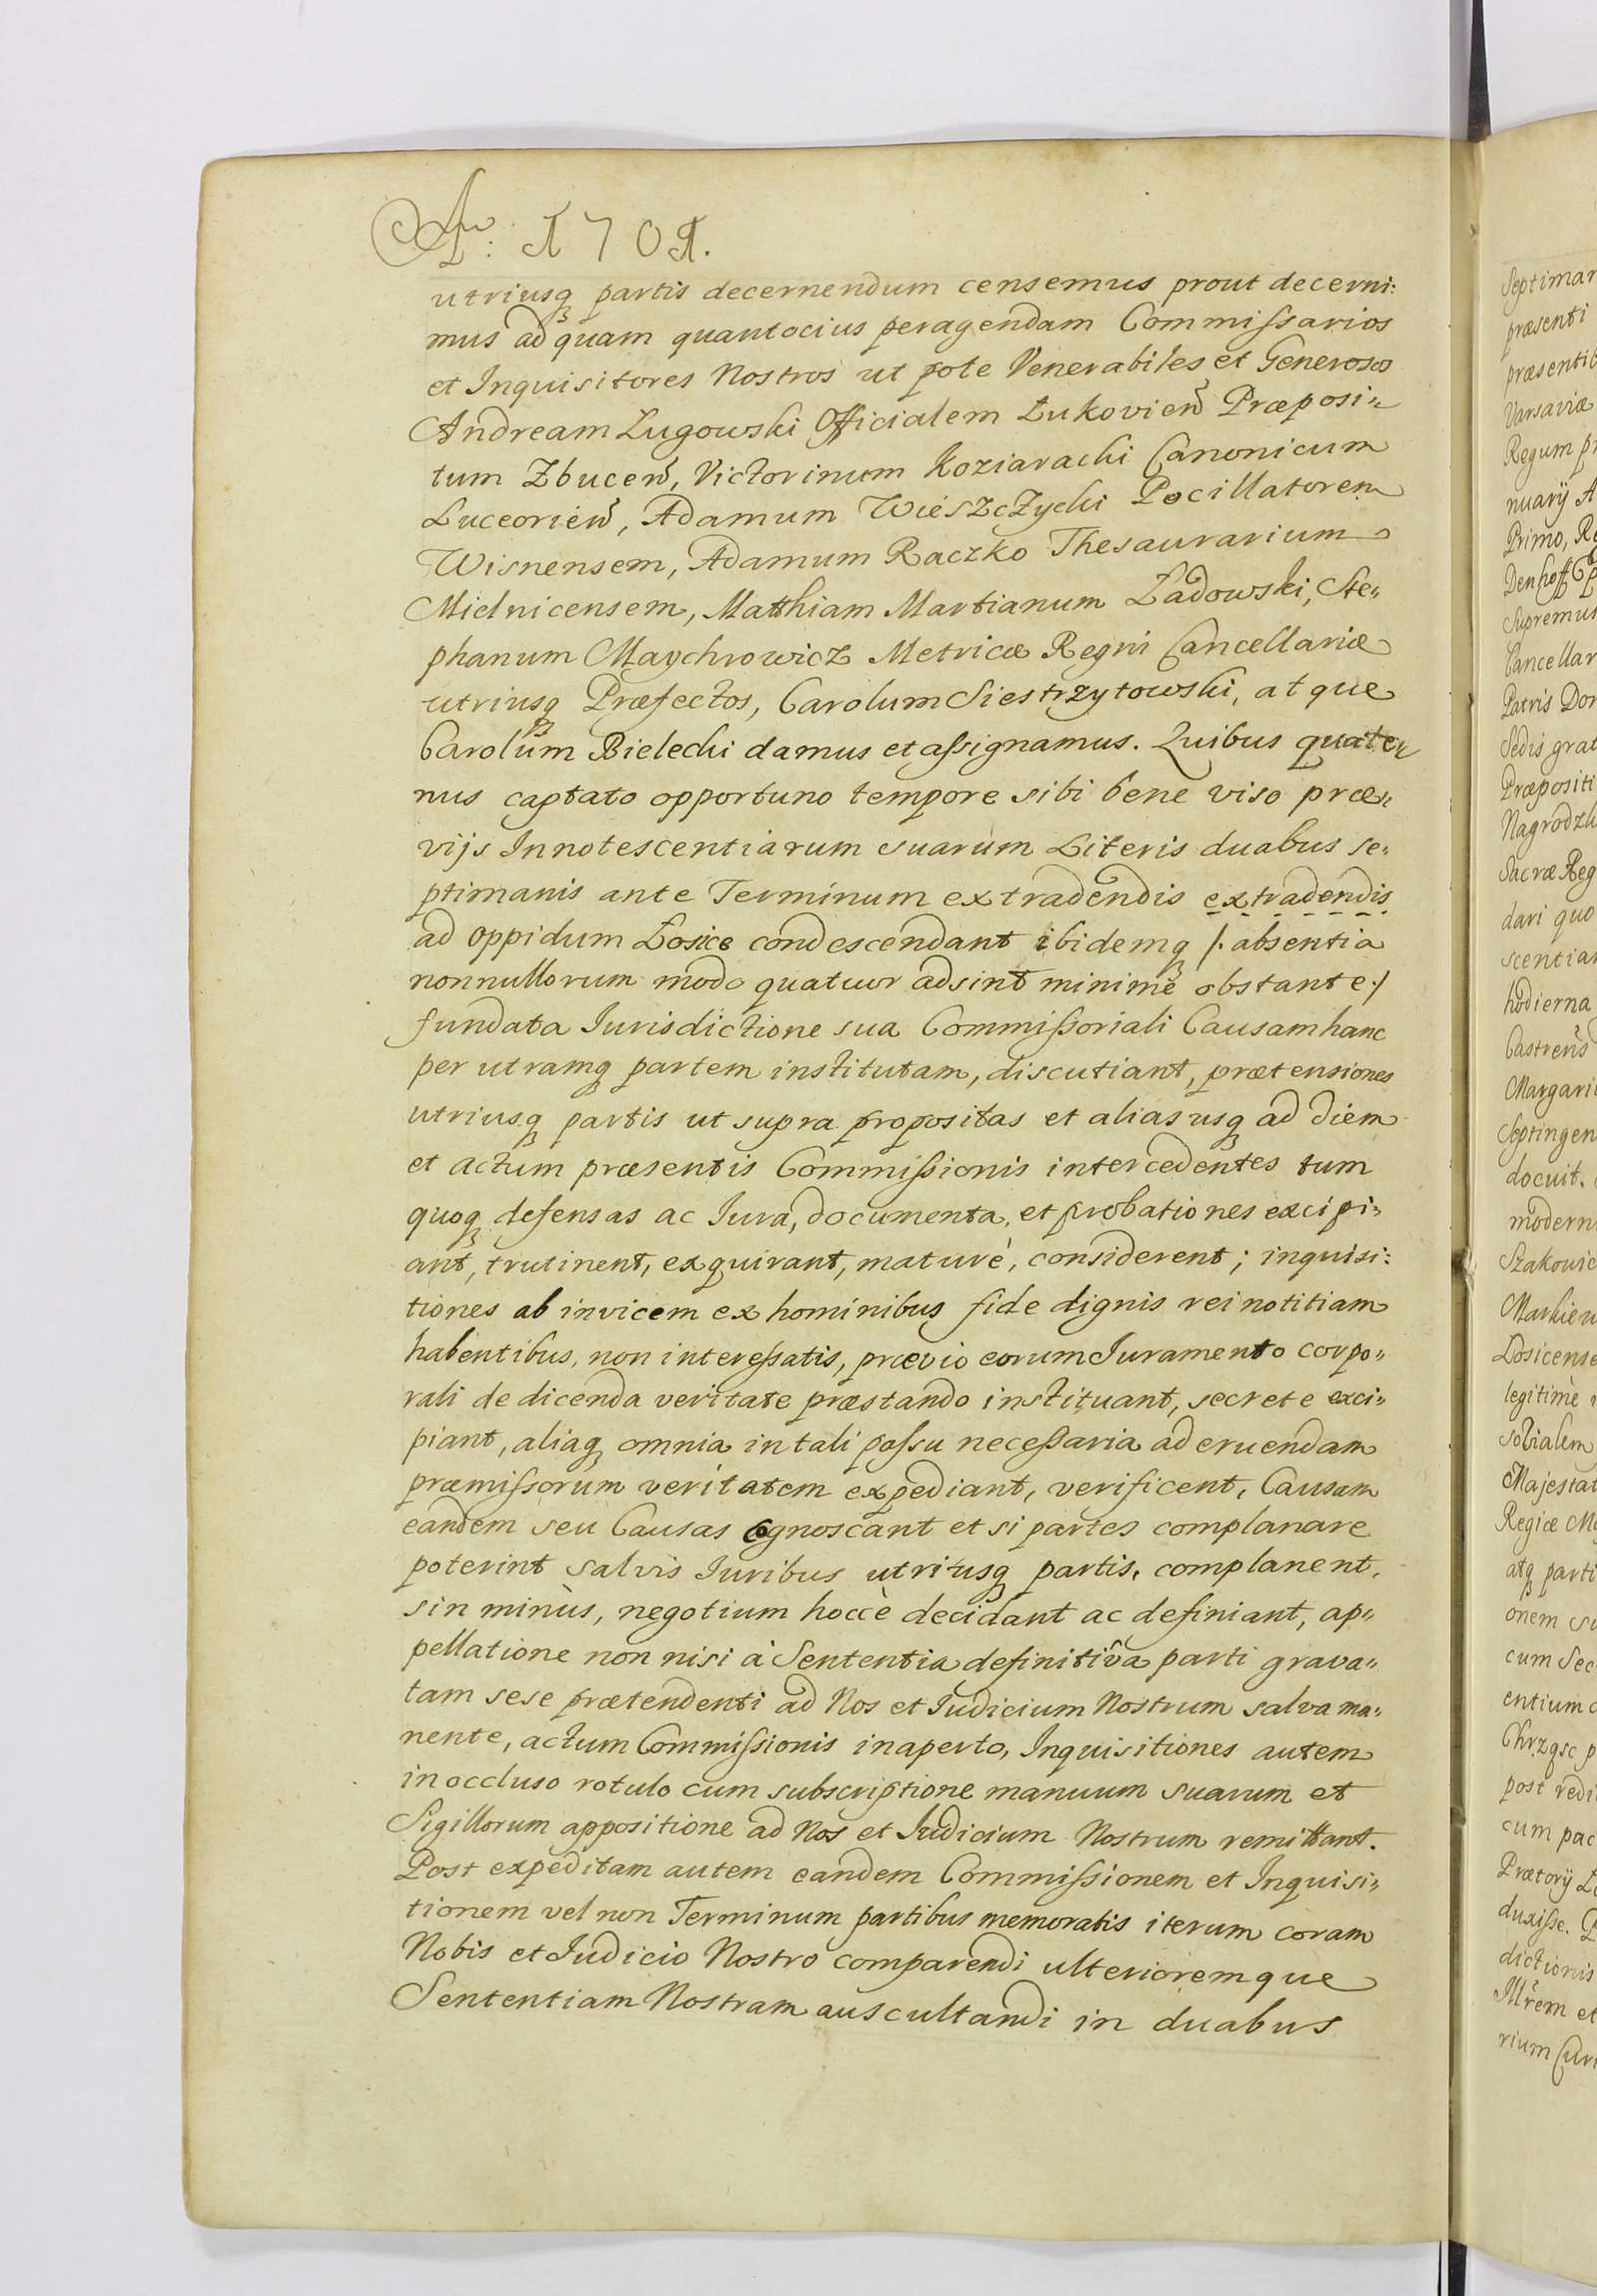 Ao: 1701.
utriusq partis decernendum censemus prout decerni:
mus ad quam quantocius peragendam Commissarios
et Inquisitores Nostros ut pote Venerabiles et Generosos
Andream Lugowski Officialem Łukovien Præposi-
tum Zbucen, Victorinum Koziaracki Canonicum
Luceorien, Adamum Wieszczycki Pocillatorem
Wisnensem, Adamum Raczko Thesaurarium
Mielnicensem, Matthiam Martianum Ładowski, Ste-
phanum Maychrowicz Metricæ Regni Cancellariæ
utriusq Præfectos, Carolum Siestrzytowski, atque
Carolum Bielecki damus et assignamus. Quibus quate-
nus captato opportuno tempore sibi bene viso præ-
vijs Innotescentiarum suarum Literis duabus se-
ptimanis ante Terminum extradendis extradendis
ad oppidum Łosice condescendant ibidemq /. absentia
nonnullorum modo quatuor adsint minimè obstante ./
fundata Iurisdictione sua Commissoriali Causam hanc
per utramq partem institutam, discutiant, prætensiones
utriusq partis ut supra propositas et alias usq ad diem
et actum præsentis Commissionis intercedentes tum
quoq defensas ac Iura, documenta, et probationes excipi-
ant, trutinent, exquirant, maturè, considerent; inquisi:
tiones ab invicem ex hominibus fide dignis rei notitiam
habentibus, non interessatis, prævio eorum Iuramento corpo-
rali de dicenda veritate præstando instituant, secrete exci-
piant, aliaq omnia in tali passu necessaria ad eruendam
præmissorum veritatem expediant, verificent, Causam
eandem seu Causas cognoscant et si partes complanare
poterint salvis Iuribus utriusq partis, complanent,
sin minùs, negotium hoccè decidant ac definiant, ap-
pellatione non nisi à Sententia definitivâ parti grava-
tam sese prætendenti ad Nos et Iudicium Nostrum salva ma-
nente, actum Commissionis in aperto, Inquisitiones autem
in occluso rotulo cum subscriptione manuum suarum et
Sigillorum appositione ad Nos et Iudicium Nostrum remittant.
Post expeditam autem eandem Commissionem et Inquisi-
tionem vel non Terminum partibus memoratis iterum coram
Nobis et Iudicio Nostro comparendi ulterioremque
Sententiam Nostram auscultandi in duabus